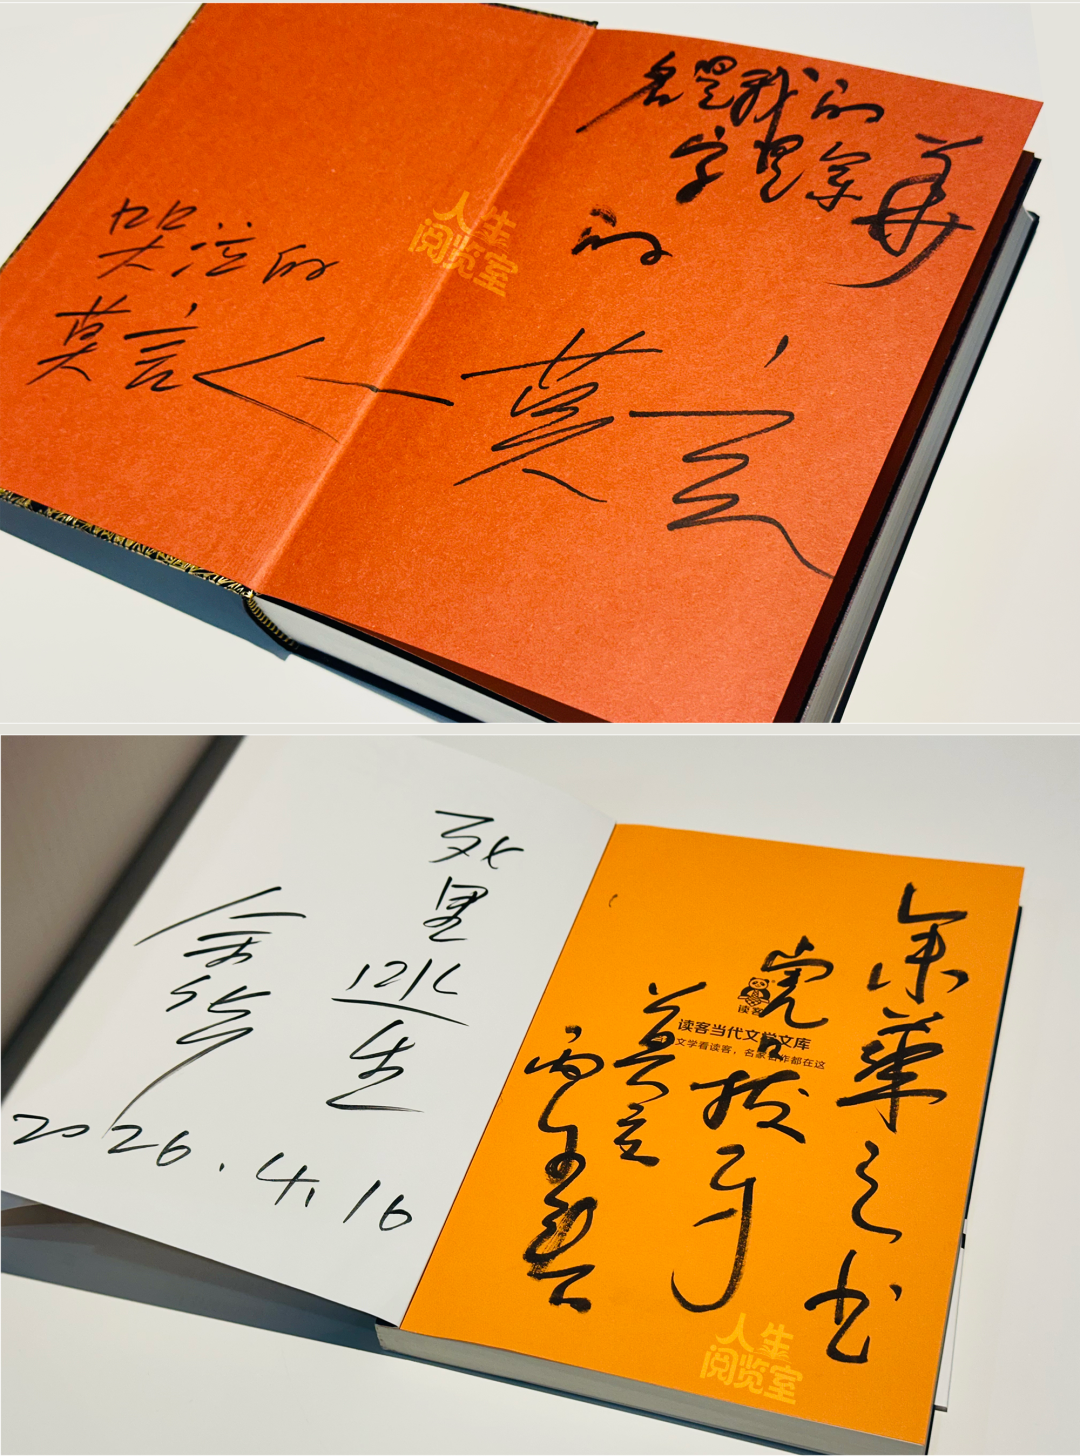 名是我的
字是余华
的
莫言
哭泣的
莫言
人生
阅览室
死里逃生
余华
2026.4.16
余华之书
虎口拔牙
莫言
丙午
读客
读客当代文学文库
文学看读客，名家名作都在这
人生
阅览室